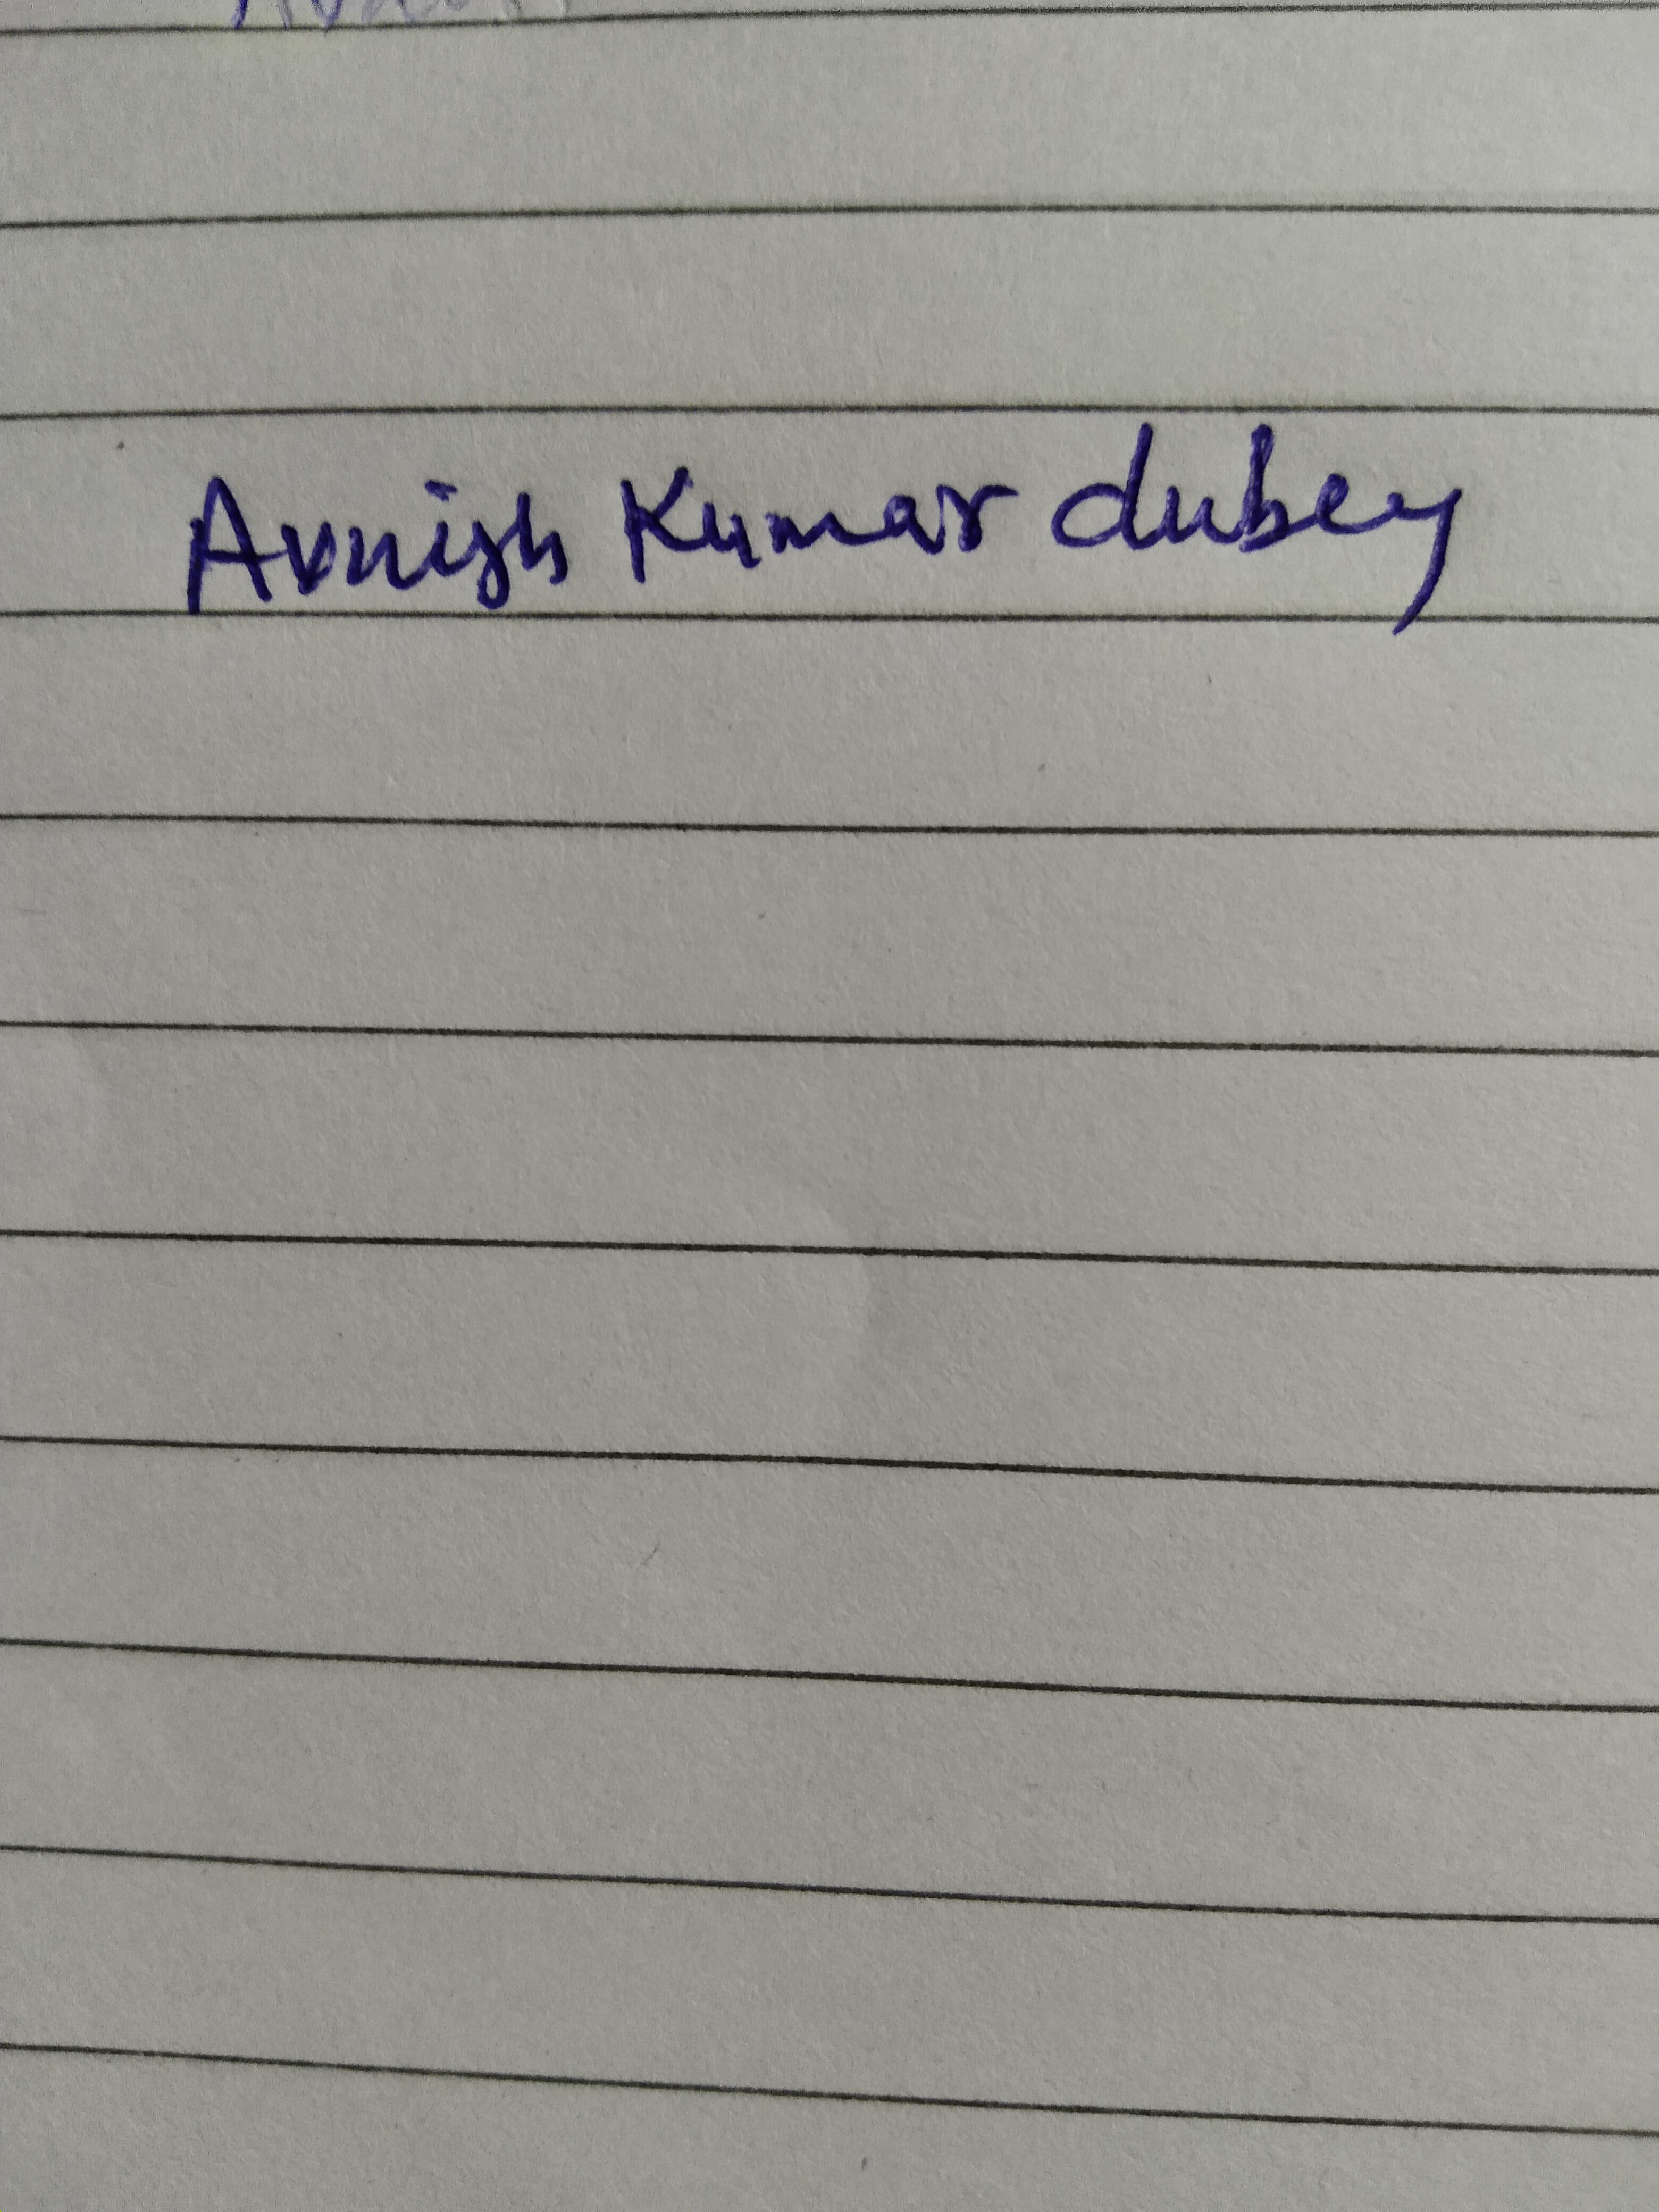 Avnish Kumar dubey